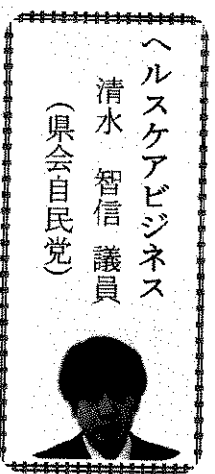 ヘルスケアビジネス
清水 智信 議員
（県会自民党）